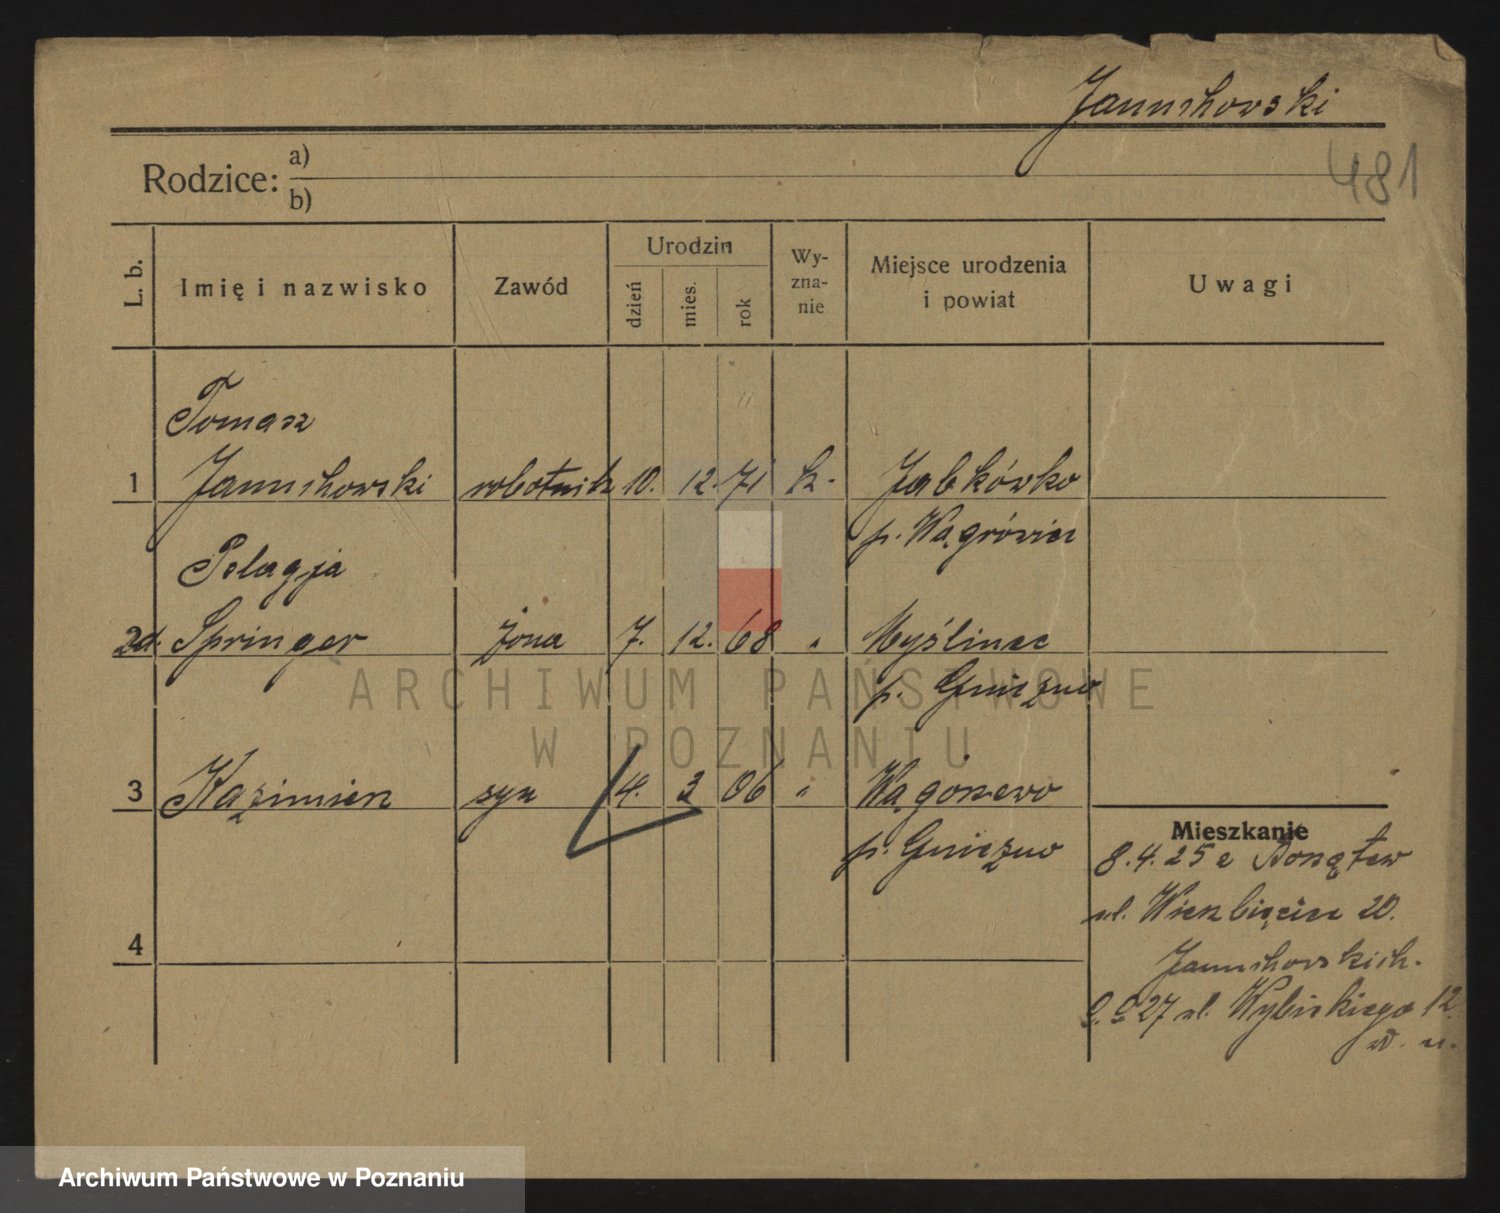 Januchowski
481
Rodzice: a)
b)
L. b. Imię i nazwisko Zawód Urodzin dzień mies. rok Wy-zna-nie Miejsce urodzenia i powiat Uwagi
Tomasz
1 Januchowski robotnik 10. 12. 71 k. Jabkówko
p. Wągrówiec
Pelagja
2 d. Springer żona 7. 12. 68 " Myślinec
p. Gniezno
3 Kazimierz syn 4. 3 06 " Wągorzewo
p. Gniezno
Mieszkanie
8.4.25 z
ul. Wierzbięcice 20.
Januchowskich.
27 ul. Wybickiego 12
4
ARCHIWUM PAŃSTWOWE
W POZNANIU
Archiwum Państwowe w Poznaniu